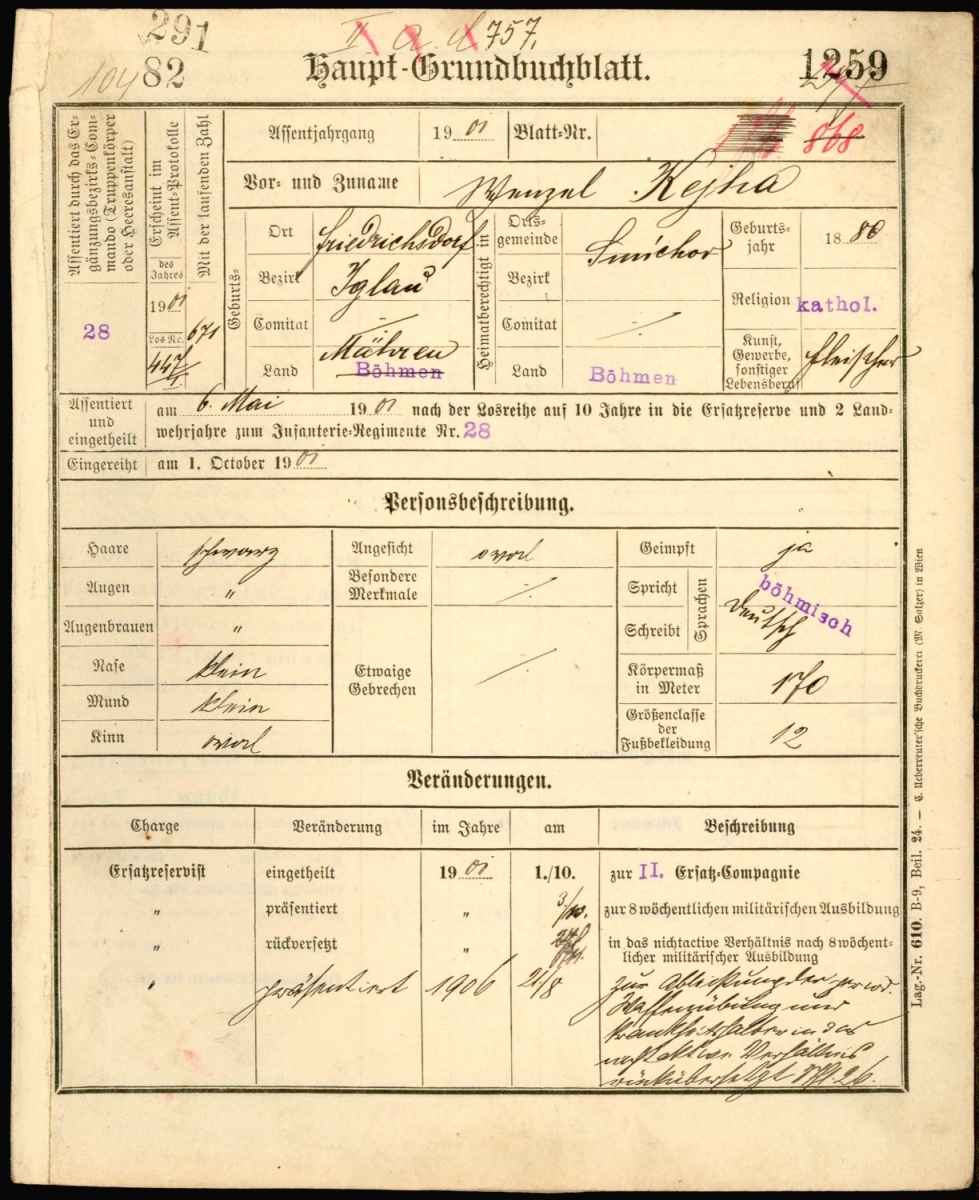 291
757.
104 82
Haupt-Grundbuchblatt.
1259
Assentiert durch das Er-
gänzungsbezirks-Com-
mando (Truppenkörper
oder Heeresanstalt)
28
Erscheint im
Assent-Protokolle
des
Jahres
1901
Los Nr.
447/1
Mit der laufenden Zahl
671
Assentjahrgang 1901 Blatt-Nr. 868
Vor- und Zuname Wenzel Kejha
Geburts-
Ort Friedrichsdorf
Bezirk Iglau
Comitat /
Land Mähren
Böhmen
Heimatberechtigt in
Orts-
gemeinde Smichov
Bezirk
Comitat ·/·
Land Böhmen
Geburts-
jahr 1880
Religion kathol.
Kunst,
Gewerbe,
sonstiger
Lebensberuf Fleischer
Assentiert
und
eingetheilt
am 6. Mai 1901 nach der Losreihe auf 10 Jahre in die Ersatzreserve und 2 Land-
wehrjahre zum Infanterie-Regimente Nr. 28
Eingereiht am 1. October 1901
Personsbeschreibung.
Haare schwarz
Augen "
Augenbrauen "
Nase klein
Mund klein
Kinn oval
Angesicht oval
Besondere
Merkmale ·/·
Etwaige
Gebrechen ·/·
Geimpft ja
Spricht
Schreibt
Sprachen
böhmisch
deutsch
Körpermaß
in Meter 170
Größenclasse
der
Fußbekleidung 12
Veränderungen.
Charge Veränderung im Jahre am Beschreibung
Ersatzreservist eingetheilt 1901 1./10. zur II. Ersatz-Compagnie
" präsentiert " 3/10. zur 8 wöchentlichen militärischen Ausbildung
" rückversetzt " in das nichtactive Verhältnis nach 8 wöchent-
licher militärischer Ausbildung
" präsentiert 1906 21/8 zur Ableistung der
Waffenübung und
krankheitshalber in das
nichtaktive Verhältnis
rückübersetzt 26.
Lag.-Nr. 610. B-9, Beil. 24. — C. Ueberreuter'sche Buchdruckerei (M. Salzer) in Wien